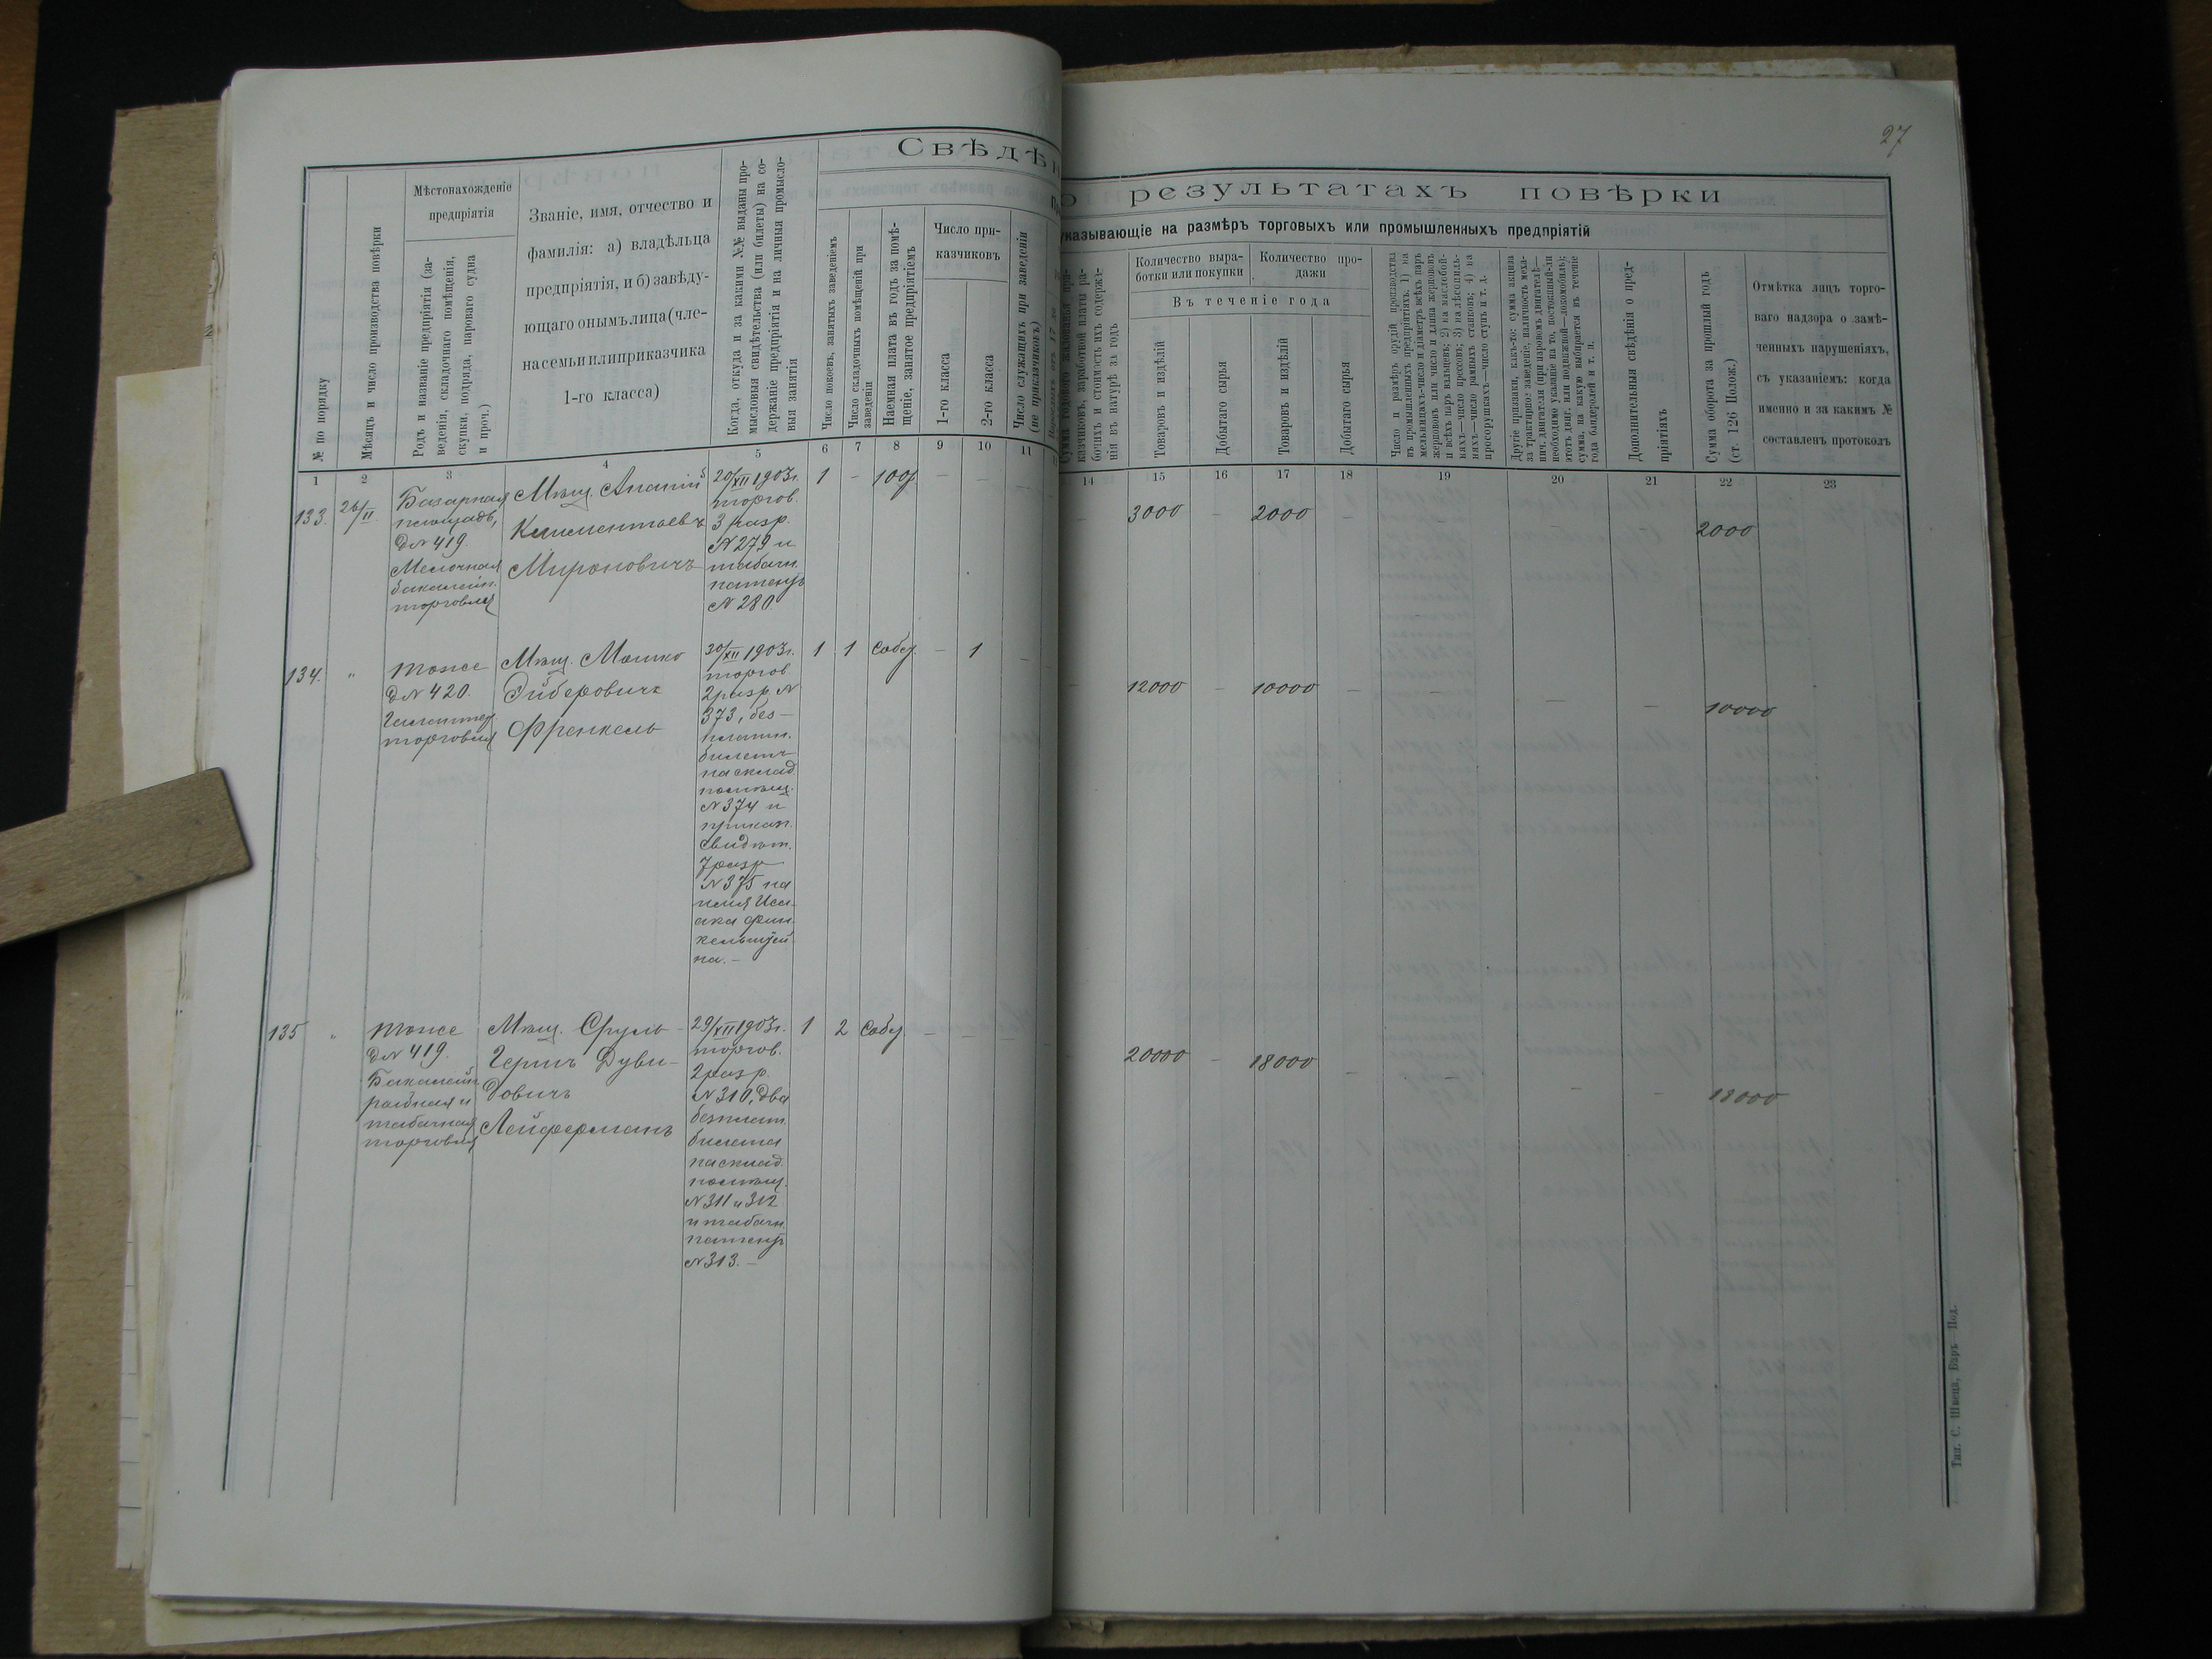 27
Свѣдѣн
о результатахъ повѣрки
указывающіе на размѣръ торговыхъ или промышленныхъ предпріятій
№ по порядку
Мѣсяцъ и число производства повѣрки
Мѣстонахожденіе
предпріятія
Родъ и названіе предпріятія (за-
веденія, складочнаго помѣщенія,
скупки, подряда, парового судна
и проч.)
Званіе, имя, отчество и
фамилія: а) владѣльца
предпріятія, и б) завѣду-
ющаго онымъ лица (чле-
на семьи или приказчика
1-го класса)
Когда, откуда и за какими №№ выданы про-
мысловыя свидѣтельства (или билеты) на со-
держаніе предпріятія и на личныя промысло-
выя занятія
Число покоевъ, занятыхъ заведеніемъ
Число складочныхъ помѣщеній при
заведеніи
Наемная плата въ годъ за помѣ-
щеніе, занятое предпріятіемъ
Число при-
казчиковъ
1-го класса
2-го класса
Число служащихъ при заведеніи
(не приказчиковъ)
казчиковъ, заработной платы ра-
бочихъ и стоимость ихъ содержа-
нія въ натурѣ за годъ
Количество выра-
ботки или покупки
Количество про-
дажи
Въ теченіе года
Товаровъ и издѣлій
Добытаго сырья
Товаровъ и издѣлій
Добытаго сырья
Число и размѣръ орудій производства
въ промышленныхъ предпріятіяхъ: 1) на
мельницахъ—число и діаметръ всѣхъ паръ
жернововъ или число и длина жернововъ
и всѣхъ паръ вальцевъ; 2) на маслобой-
кахъ—число прессовъ; 3) на лѣсопиль-
няхъ—число рамныхъ станковъ; 4) на
просорушкахъ—число ступъ и т. д.
Другіе признаки, какъ-то: сумма акциза
за трактирное заведеніе, наличность меха-
нич. двигателя (при паровомъ двигателѣ—
необходимо указаніе на то, постоянный-ли
этотъ двиг. или подвижной—локомобиль);
сумма, на какую выбирается въ теченіе
года бандеролей и т. п.
Дополнительныя свѣдѣнія о пред-
пріятіяхъ
Сумма оборота за прошлый годъ
(ст. 126 Полож.)
Отмѣтка лицъ торго-
ваго надзора о замѣ-
ченныхъ нарушеніяхъ,
съ указаніемъ: когда
именно и за какимъ №
составленъ протоколъ
1 2 3 4 5 6 7 8 9 10 11 14 15 16 17 18 19 20 21 22 23
133. 26/II Базарная
площадь,
д № 419.
Мелочная
бакалейн.
торговля
Мѣщ. Ананій
Климентьевъ
Мироновичъ
20/XII 1903г.
торгов.
3 разр.
№ 279 и
табачн.
патентъ
№ 280
1 – 100р – – – – 3000 – 2000 – – – – 2000
134. " тоже
д № 420.
торговля
Мѣщ. Мошко
Эйберовичъ
Френкель
30/XII 1903г.
торгов.
2 разр. №
373, без-
платн.
билетъ
на склад.
помѣщ.
№ 374 и
приказ.
свидѣт.
7 разр
№ 375 на
имя Иса-
ака Фин-
кельштей-
на. –
1 1 собс. – 1 – – 12000 – 10000 – – – – 10000
135 " тоже
д № 419.
Бакалейн.
рыбная и
табачная
торговля
Мѣщ. Сруль-
Гершъ Дуви-
довичъ
Лейферманъ
29/XII 1903г.
торгов.
2 разр.
№ 310, два
безплат.
билета
на склад.
помѣщ.
№ 311 и 312
и табачн.
патентъ
№ 313. –
1 2 собс. – – – – 20000 – 18000 – – – – 18000
Тип. С. Швеца, Баръ—Под.